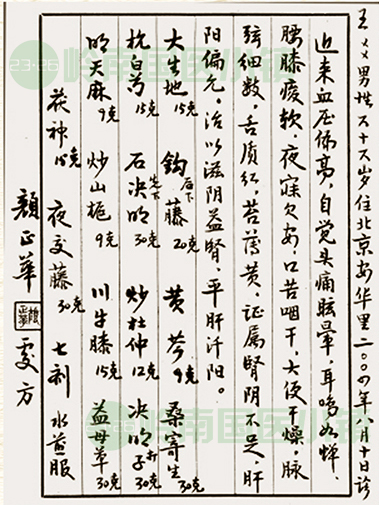 王××男性六十六岁住北京安华里二〇〇四年八月十日诊
近来血压偏高，自觉头痛眩晕，耳鸣如蝉，
腰膝痠软，夜寐欠安，口苦咽干，大便干燥，脉
弦细数，舌质红，苔薄黄，证属肾阴不足，肝
阳偏亢，治以滋阴益肾，平肝汗阳。
大生地15克 钩后下藤20克 黄芩9克 桑寄生30克
杭白芍15克 石决明先下30克 炒杜仲12克 决明子打30克
明天麻9克 炒山栀9克 川牛膝15克 益母草30克
茯神15克 夜交藤30克 七剂 水煎服
颜正华 处方
23·26 岭南国医小镇
岭南国医小镇